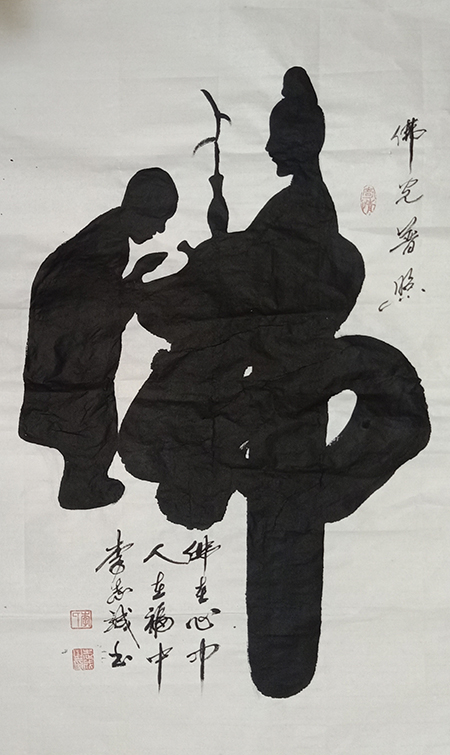 佛
佛光普照
佛在心中
人在福中
李志诚书